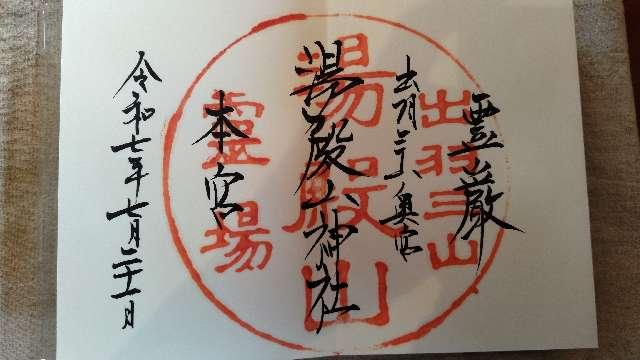 霊巌
出羽三山奥宮
湯殿山神社
本宮
令和七年七月二十一日
出羽三山
湯殿山
霊場